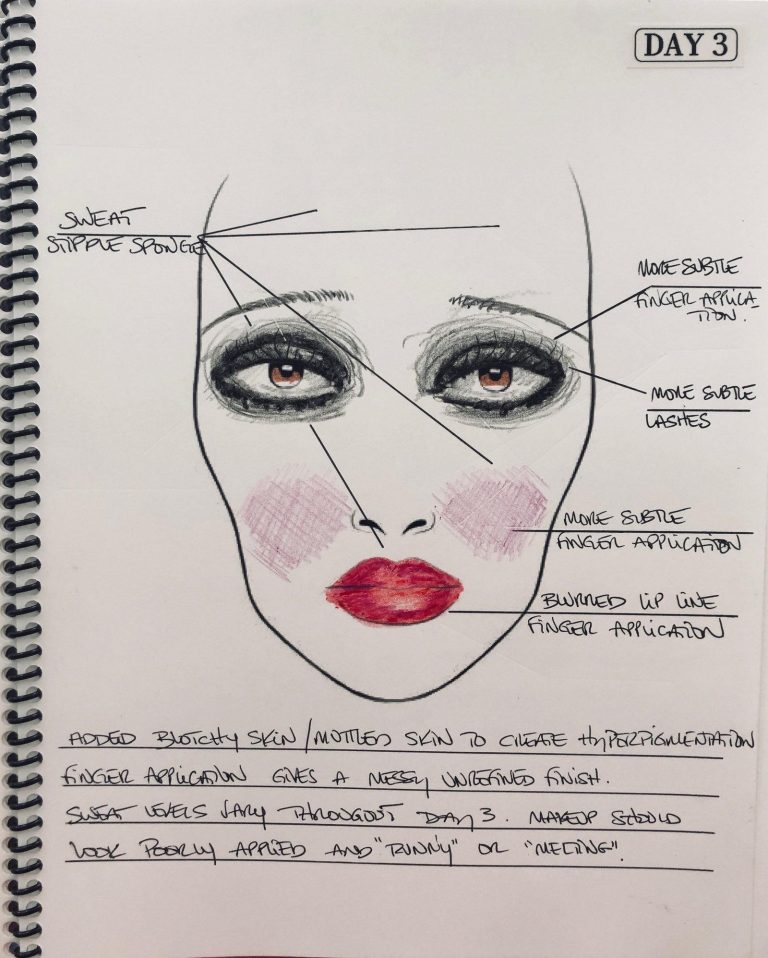 DAY 3
SWEAT
STIPPLE SPONGE
MORE SUBTLE
FINGER APPLICA-
TION.
MORE SUBTLE
LASHES
MORE SUBTLE
FINGER APPLICATION
BLURRED LIP LINE
FINGER APPLICATION
ADDED BLOTCHY SKIN / MOTTLED SKIN TO CREATE HYPERPIGMENTATION
FINGER APPLICATION GIVES A MESSY UNREFINED FINISH.
SWEAT LEVELS VARY THROUGOUT DAY 3. MAKEUP SHOULD
LOOK POORLY APPLIED AND "RUNNY" OR "MELTING".